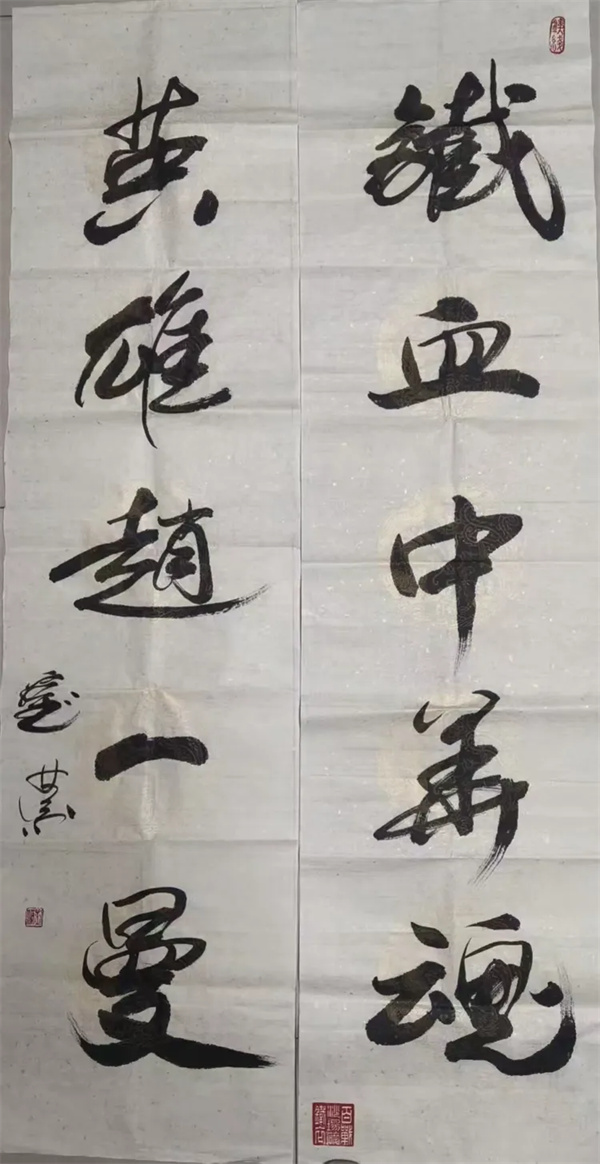 鐵血中華魂
英雄趙一曼